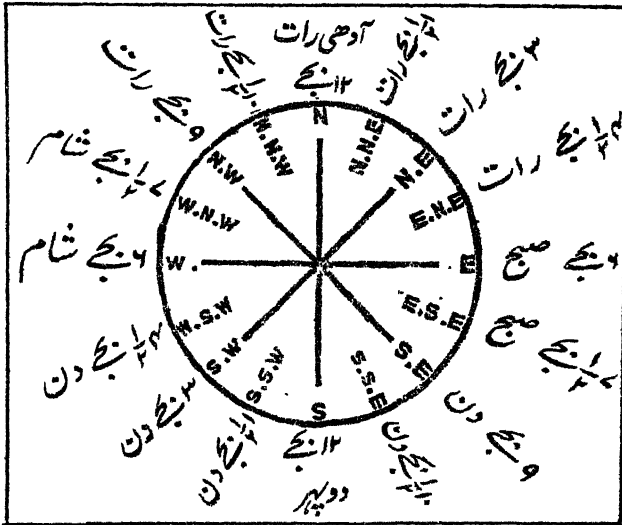 آدھی رات
۱۲ بجے
N
۱ ۱/۲ بجے رات
N.N.E
۳ بجے رات
N.E
۴ ۱/۲ بجے رات
E.N.E
۶ بجے صبح
E
۷ ۱/۲ بجے صبح
E.S.E
۹ بجے دن
S.E
۱۰ ۱/۲ بجے دن
S.S.E
۱۲ بجے
دوپہر
S
۱ ۱/۲ بجے دن
S.S.W
۳ بجے دن
S.W
۴ ۱/۲ بجے دن
W.S.W
۶ بجے شام
W.
۷ ۱/۲ بجے شام
W.N.W
۹ بجے رات
N.W
۱۰ ۱/۲ بجے رات
N.N.W